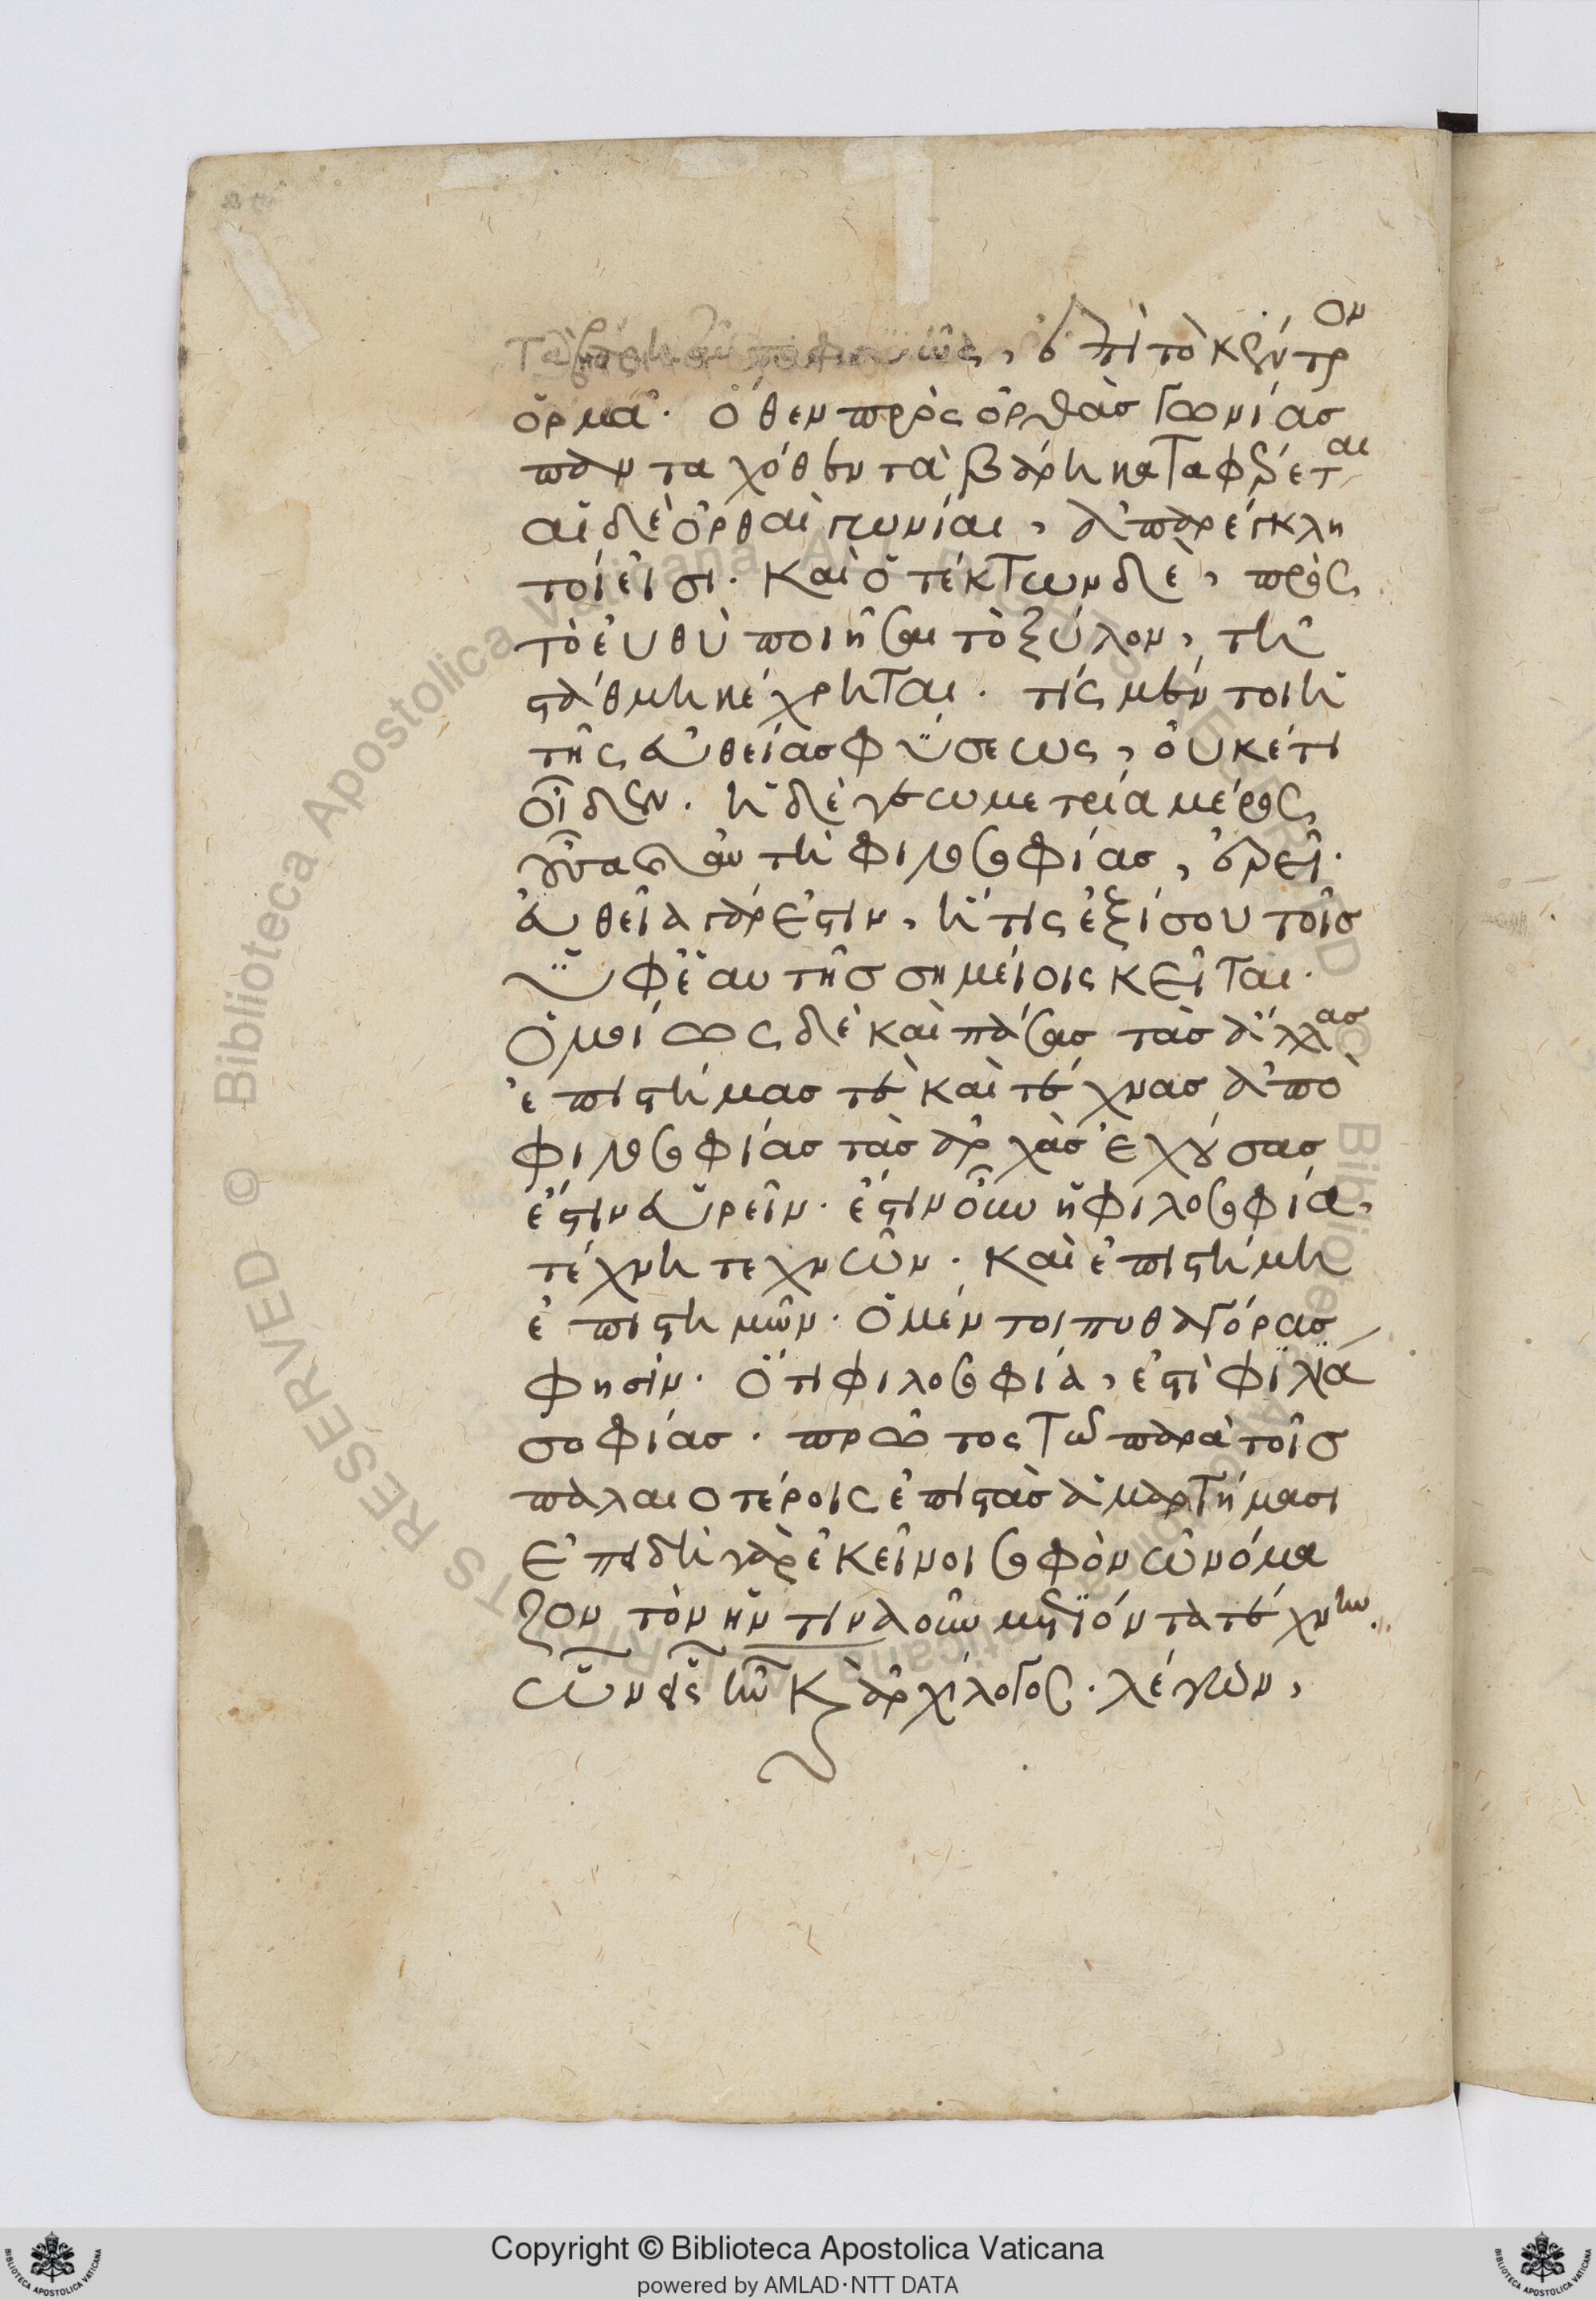 ἐπὶ τὸ κέντρον
ὁρμᾶ. ὅθεν πρὸς ὀρθὰς γωνίας
πανταχόθεν τὰ βάρη καταφέρεται
αἱ δὲ ὀρθαὶ γωνίαι, ἀπαρέγκλη
τοί εἰσι. Καὶ ὁ τέκτων δὲ, πρὸς
τὸ ἐυθὺ ποιῆσαι τὸ ξύλον, τῆ
στάθμη κέχρηται. τίς μέν τοι ἡ
τῆς ἐυθείας φύσεως, ὀυκέτι
οἶδεν. ἡ δὲ γεωμετρία μέρος
οὖσα τῆς φιλοσοφίας, ἐρεῖ.
ἐυθεῖα γάρ ἐστιν, ἥτις ἐξίσου τοῖς
ὑφ' ἑαυτῆς σημείοις κεῖται.
Ὁμοίως δὲ καὶ πάσας τὰς ἄλλας
ἐπιστήμας τὲ καὶ τέχνας ἀπὸ
φιλοσοφίας τὰς ἀρχὰς ἐχούσας
ἔστιν ἑυρεῖν. ἔστιν οὖν ἡ φιλοσοφία,
τέχνη τεχνῶν. Καὶ ἐπιστήμη
ἐπιστημῶν. Ὁ μέν τοι πυθαγόρας
φησίν. Ὅτι φιλοσοφία, ἐστὶ φιλία
σοφίας. πρῶτος τῶ παρὰ τοῖς
παλαιοτέροις ἐπιστὰς ἁμαρτήμασι
Ἐπειδὴ γὰρ ἐκεῖνοι σοφὸν ὠνόμα
ζον τὸν ἥν τινα οὖν μετιόντα τέχνην.
ὧν εἷς ἦν κ ἀρχίλοχος. λέγων,